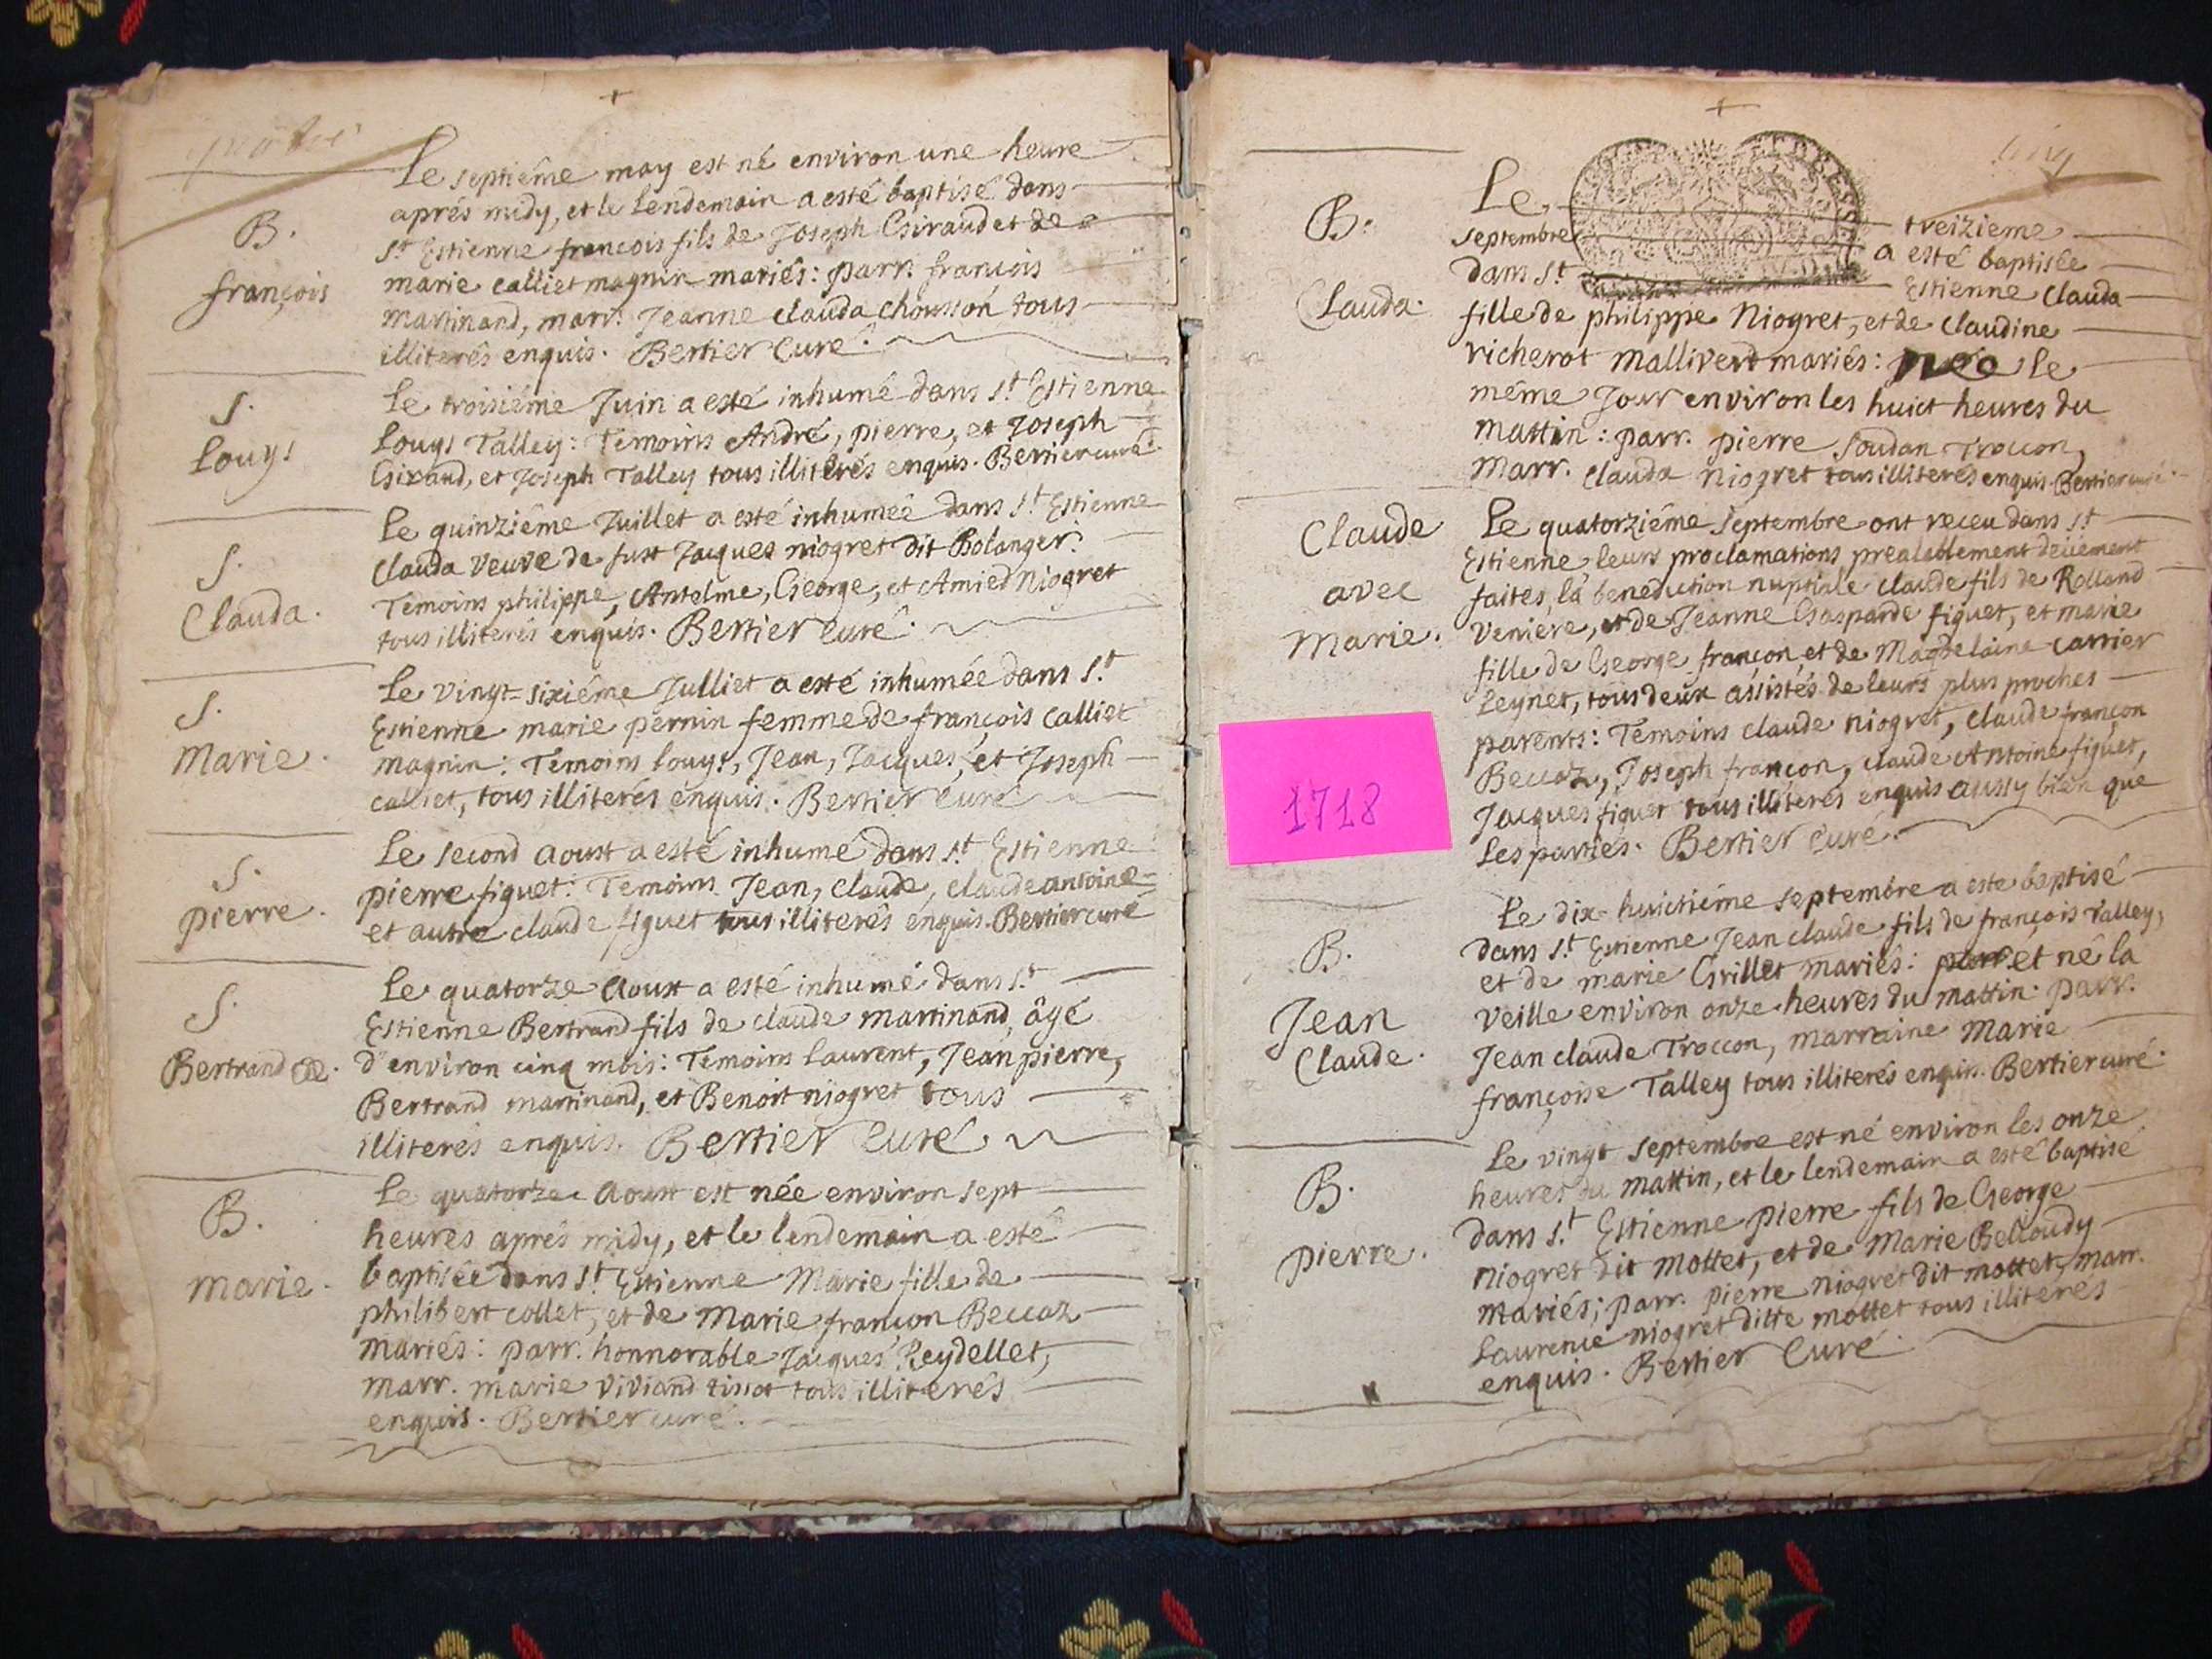 quatre
B.
françois
Le septiéme may est né environ une heure
aprés midy, et le lendemain a esté baptisé dans
St Estienne françois fils de Joseph Giraud et de
marie calliet magnin mariés: parr. françois
martinand, marr. Jeanne clauda chousson tous
illiterés enquis. Bertier Curé.
S.
Louys
Le troisiéme Juin a esté inhumé dans St Estienne
Louys Talley: Temoins André, pierre, et Joseph
Giraud, et Joseph Talley tous illiterés enquis. Bertier curé.
S.
Clauda.
Le quinziéme Juillet a esté inhumée dans St Estienne
Clauda veuve de fust Jacques niogret dit Bolanger.
Temoins philippe, Antelme, George, et Amied Niogret
tous illiterés enquis. Bertier Curé.
S.
Marie.
Le vingt-sixiéme Julliet a esté inhumée dans St
Estienne marie pernin femme de françois Calliet
magnin: Temoins Louys, Jean, Jacques, et Joseph
calliet, tous illiterés enquis. Bertier Curé
S.
pierre.
Le second aoust a esté inhumé dans St Estienne
pierre figuet: Temoins Jean, Claude, claude antoine
et autre claude figuet tous illiterés enquis. Bertier curé
S.
Bertrand
Le quatorze Aoust a esté inhumé dans St
Estienne Bertrand fils de claude martinand, âgé
d'environ cinq mois: Temoins Laurent, Jean pierre,
Bertrand martinand, et Benoit niogret tous
illiterés enquis. Bertier Curé.
B.
marie.
Le quatorze Aoust est née environ sept
heures aprés midy, et le lendemain a esté
baptisée dans St Estienne Marie fille de
philibert collet, et de Marie françon Beccaz
mariés: parr. honnorable Jacques Reydellet,
marr. marie viviand tissot tous illiterés
enquis. Bertier curé.
cinq
B.
Clauda.
Le treizieme
septembre a esté baptisée
dans St Estienne Clauda
fille de philippe Niogret, et de claudine
richerot mallivert mariés: née le
même Jour environ les huict heures du
mattin: parr. pierre Soudan Troccon,
marr. clauda niogret tous illiterés enquis. Bertier curé.
Claude
avec
Marie.
Le quatorziéme septembre ont receu dans St
Estienne leurs proclamations prealablement deüement
faites, la benediction nuptiale claude fils de Rolland
veniere, et de Jeanne Gasparde figuet, et marie
fille de George françon, et de Magdelaine carrier
Leynet, tous deux assistés de leurs plus proches
parents: Temoins claude niogret, claude françon
Beccaz, Joseph françon, claude Antoine figuet,
Jacques figuet tous illiterés enquis aussy bien que
Les parties. Bertier Curé.
1718
B.
Jean
Claude.
Le dix-huictiéme septembre a esté baptisé
dans St Estienne Jean claude fils de françois Talley,
et de marie Grillet mariés: et né la
veille environ onze heures du mattin: parr.
Jean claude Troccon, marraine Marie
françoise Talley tous illiterés enquis. Bertier curé.
B.
pierre.
Le vingt septembre est né environ les onze
heures du mattin, et le lendemain a esté baptisé
dans St Estienne pierre fils de George
niogret dit mottet, et de Marie Belloudy
mariés; parr. pierre niogret dit mottet, marr.
Laurence niogret ditte mottet tous illiterés
enquis. Bertier Curé.